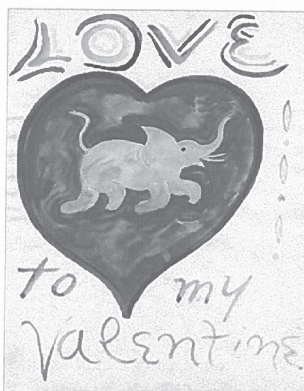 LOVE
to my
Valentine